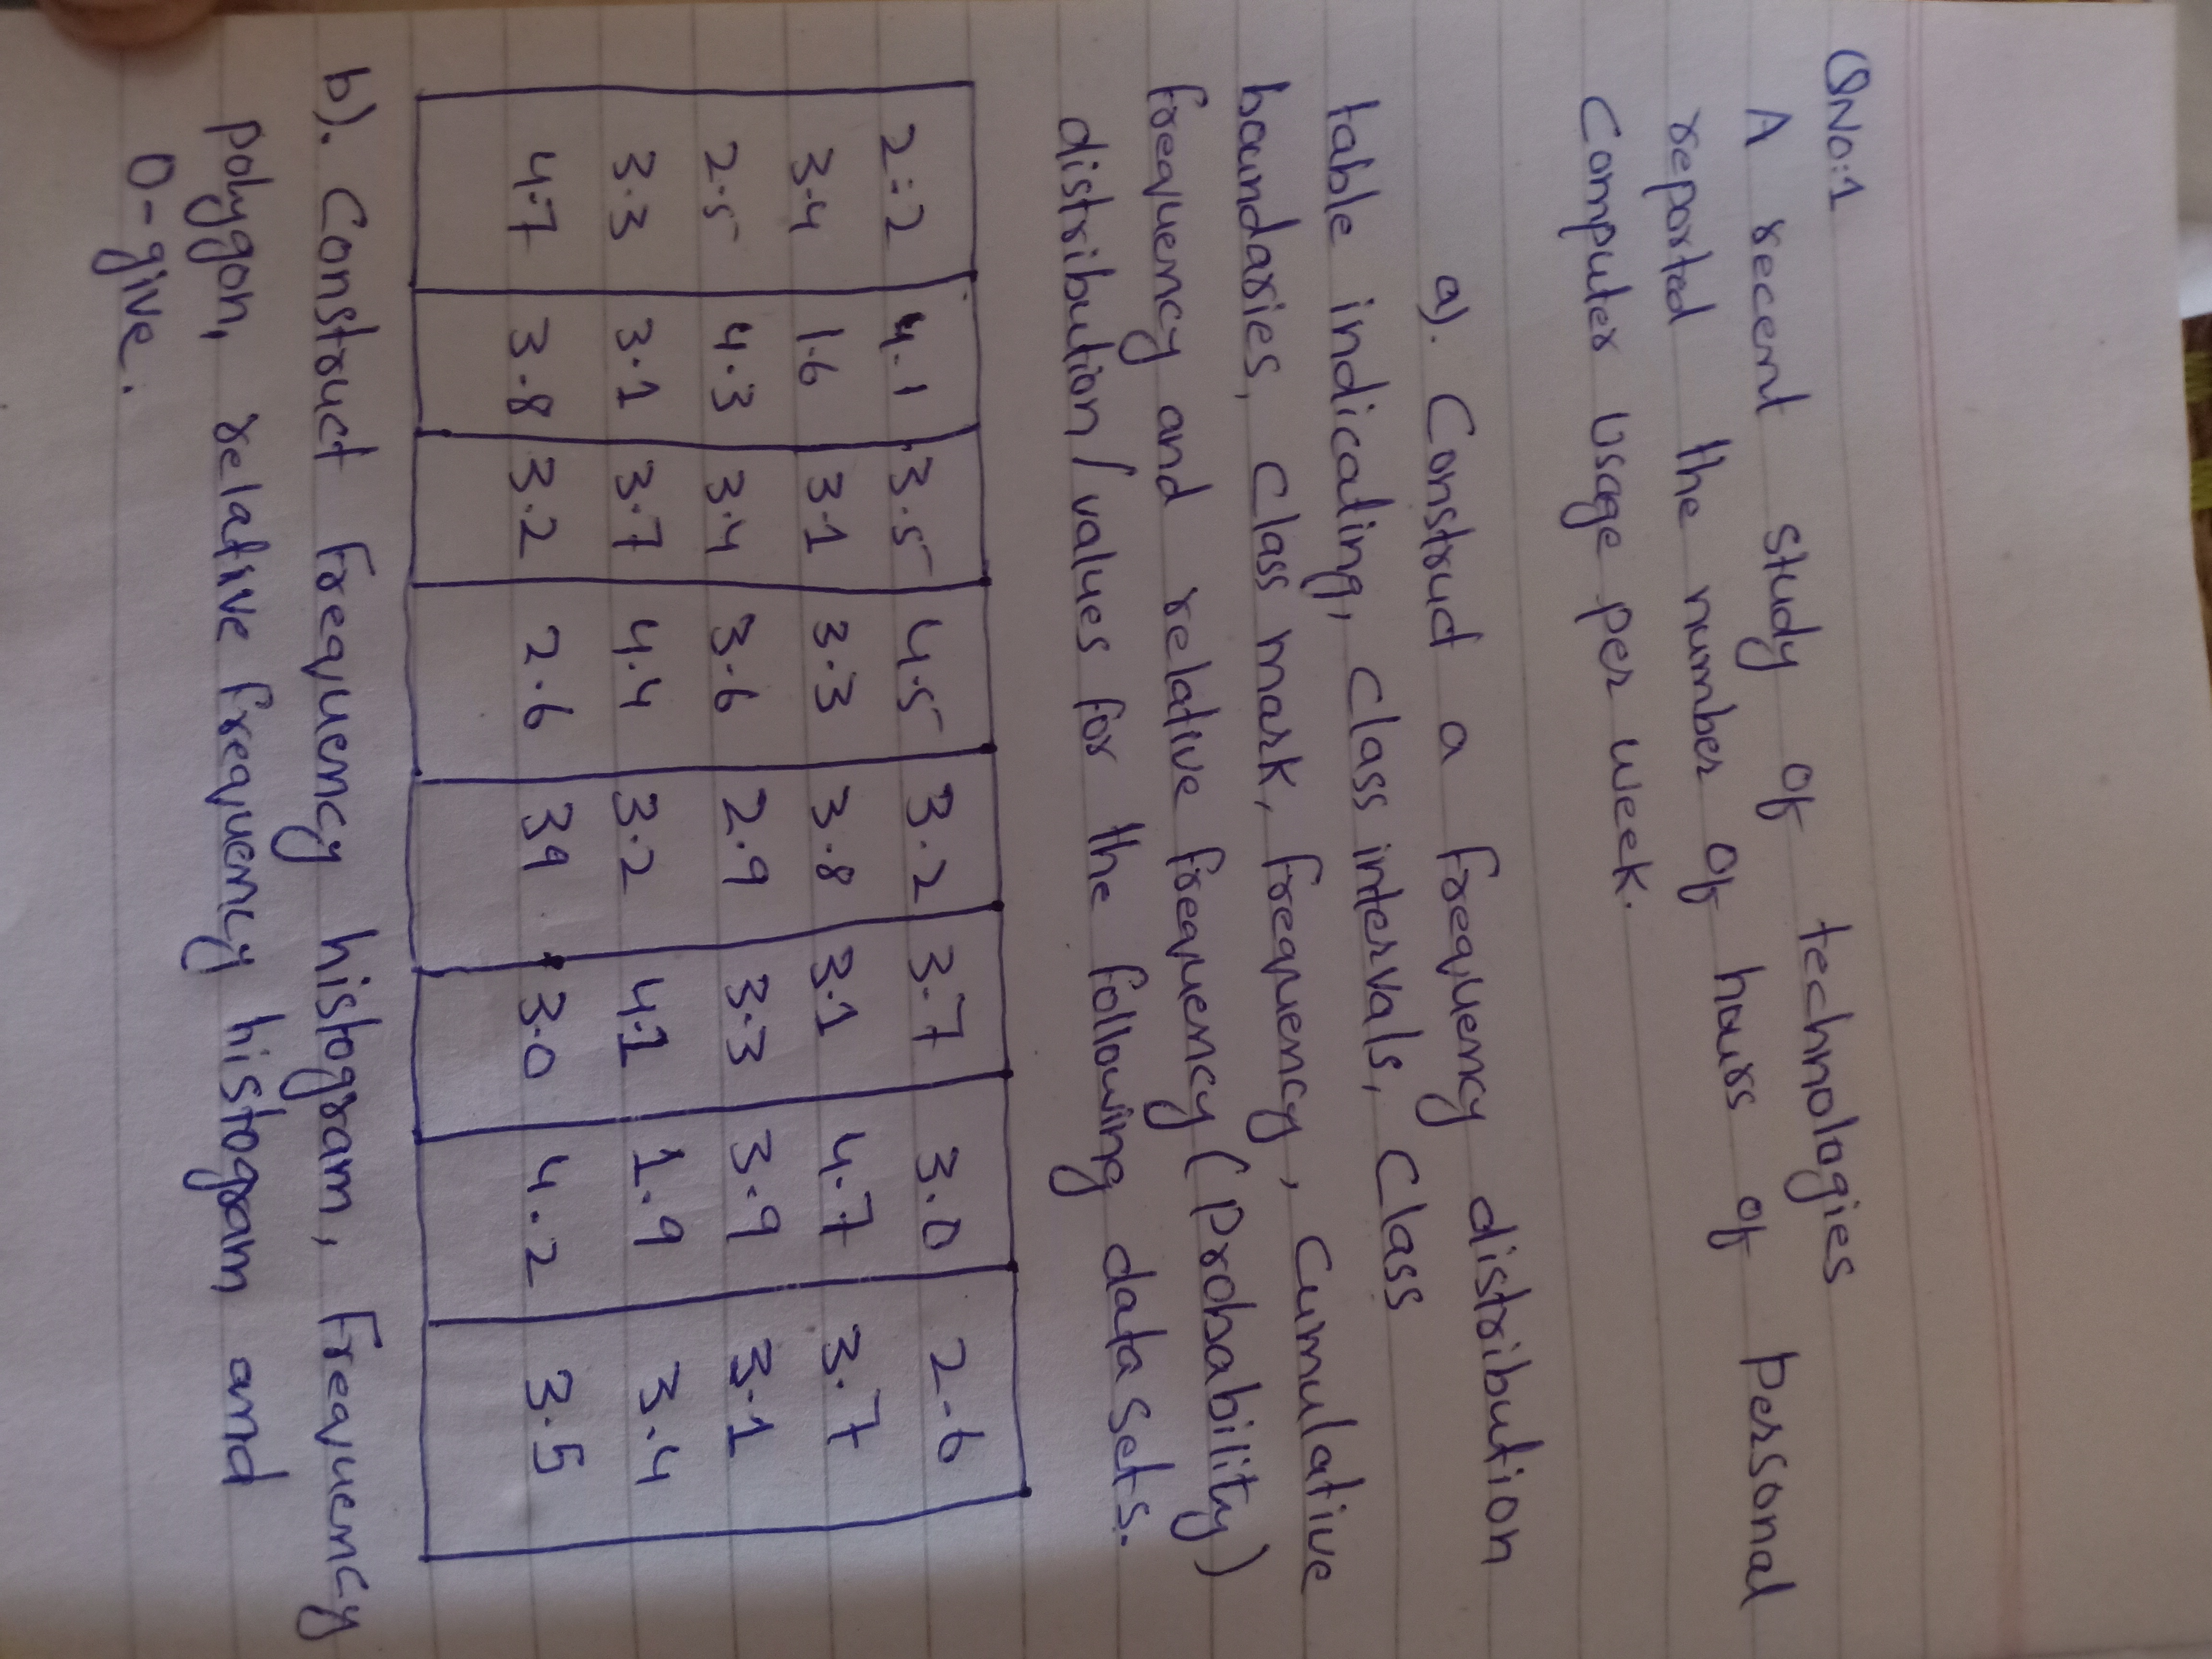 QNo:1
A recent study of technologies
reported the number of hours of personal
Computer Usage per week.
a). Construct a frequency distribution
table indicating, Class intervals, Class
boundaries, Class mark, frequency, Cumulative
frequency and relative frequency (Probability)
distribution/values for the following data sets.
2.2 4.1 3.5 4.5 3.2 3.7 3.0 2.6
3.4 1.6 3.1 3.3 3.8 3.1 4.7 3.7
2.5 4.3 3.4 3.6 2.9 3.3 3.9 3.1
3.3 3.1 3.7 4.4 3.2 4.1 1.9 3.4
4.7 3.8 3.2 2.6 39 3.0 4.2 3.5
b). Construct Frequency histogram, Frequency
polygon, relative frequency histogram and
O-give.